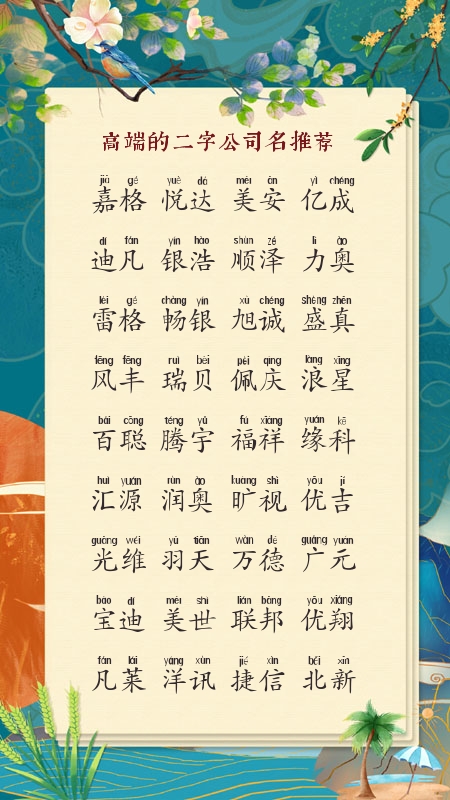 高端的二字公司名推荐
jiā gé yuè dá měi ān yì chéng
嘉格 悦达 美安 亿成
dí fán yín hào shùn zé lì ào
迪凡 银浩 顺泽 力奥
léi gé chàng yín xù chéng shèng zhēn
雷格 畅银 旭诚 盛真
fēng fēng ruì bèi pèi qìng làng xīng
风丰 瑞贝 佩庆 浪星
bǎi cōng téng yǔ fú xiáng yuán kē
百聪 腾宇 福祥 缘科
huì yuán rùn ào kuàng shì yōu jí
汇源 润奥 旷视 优吉
guāng wéi yǔ tiān wàn dé guǎng yuán
光维 羽天 万德 广元
bǎo dí měi shì lián bāng yōu xiáng
宝迪 美世 联邦 优翔
fán lái yáng xùn jié xìn běi xīn
凡莱 洋讯 捷信 北新